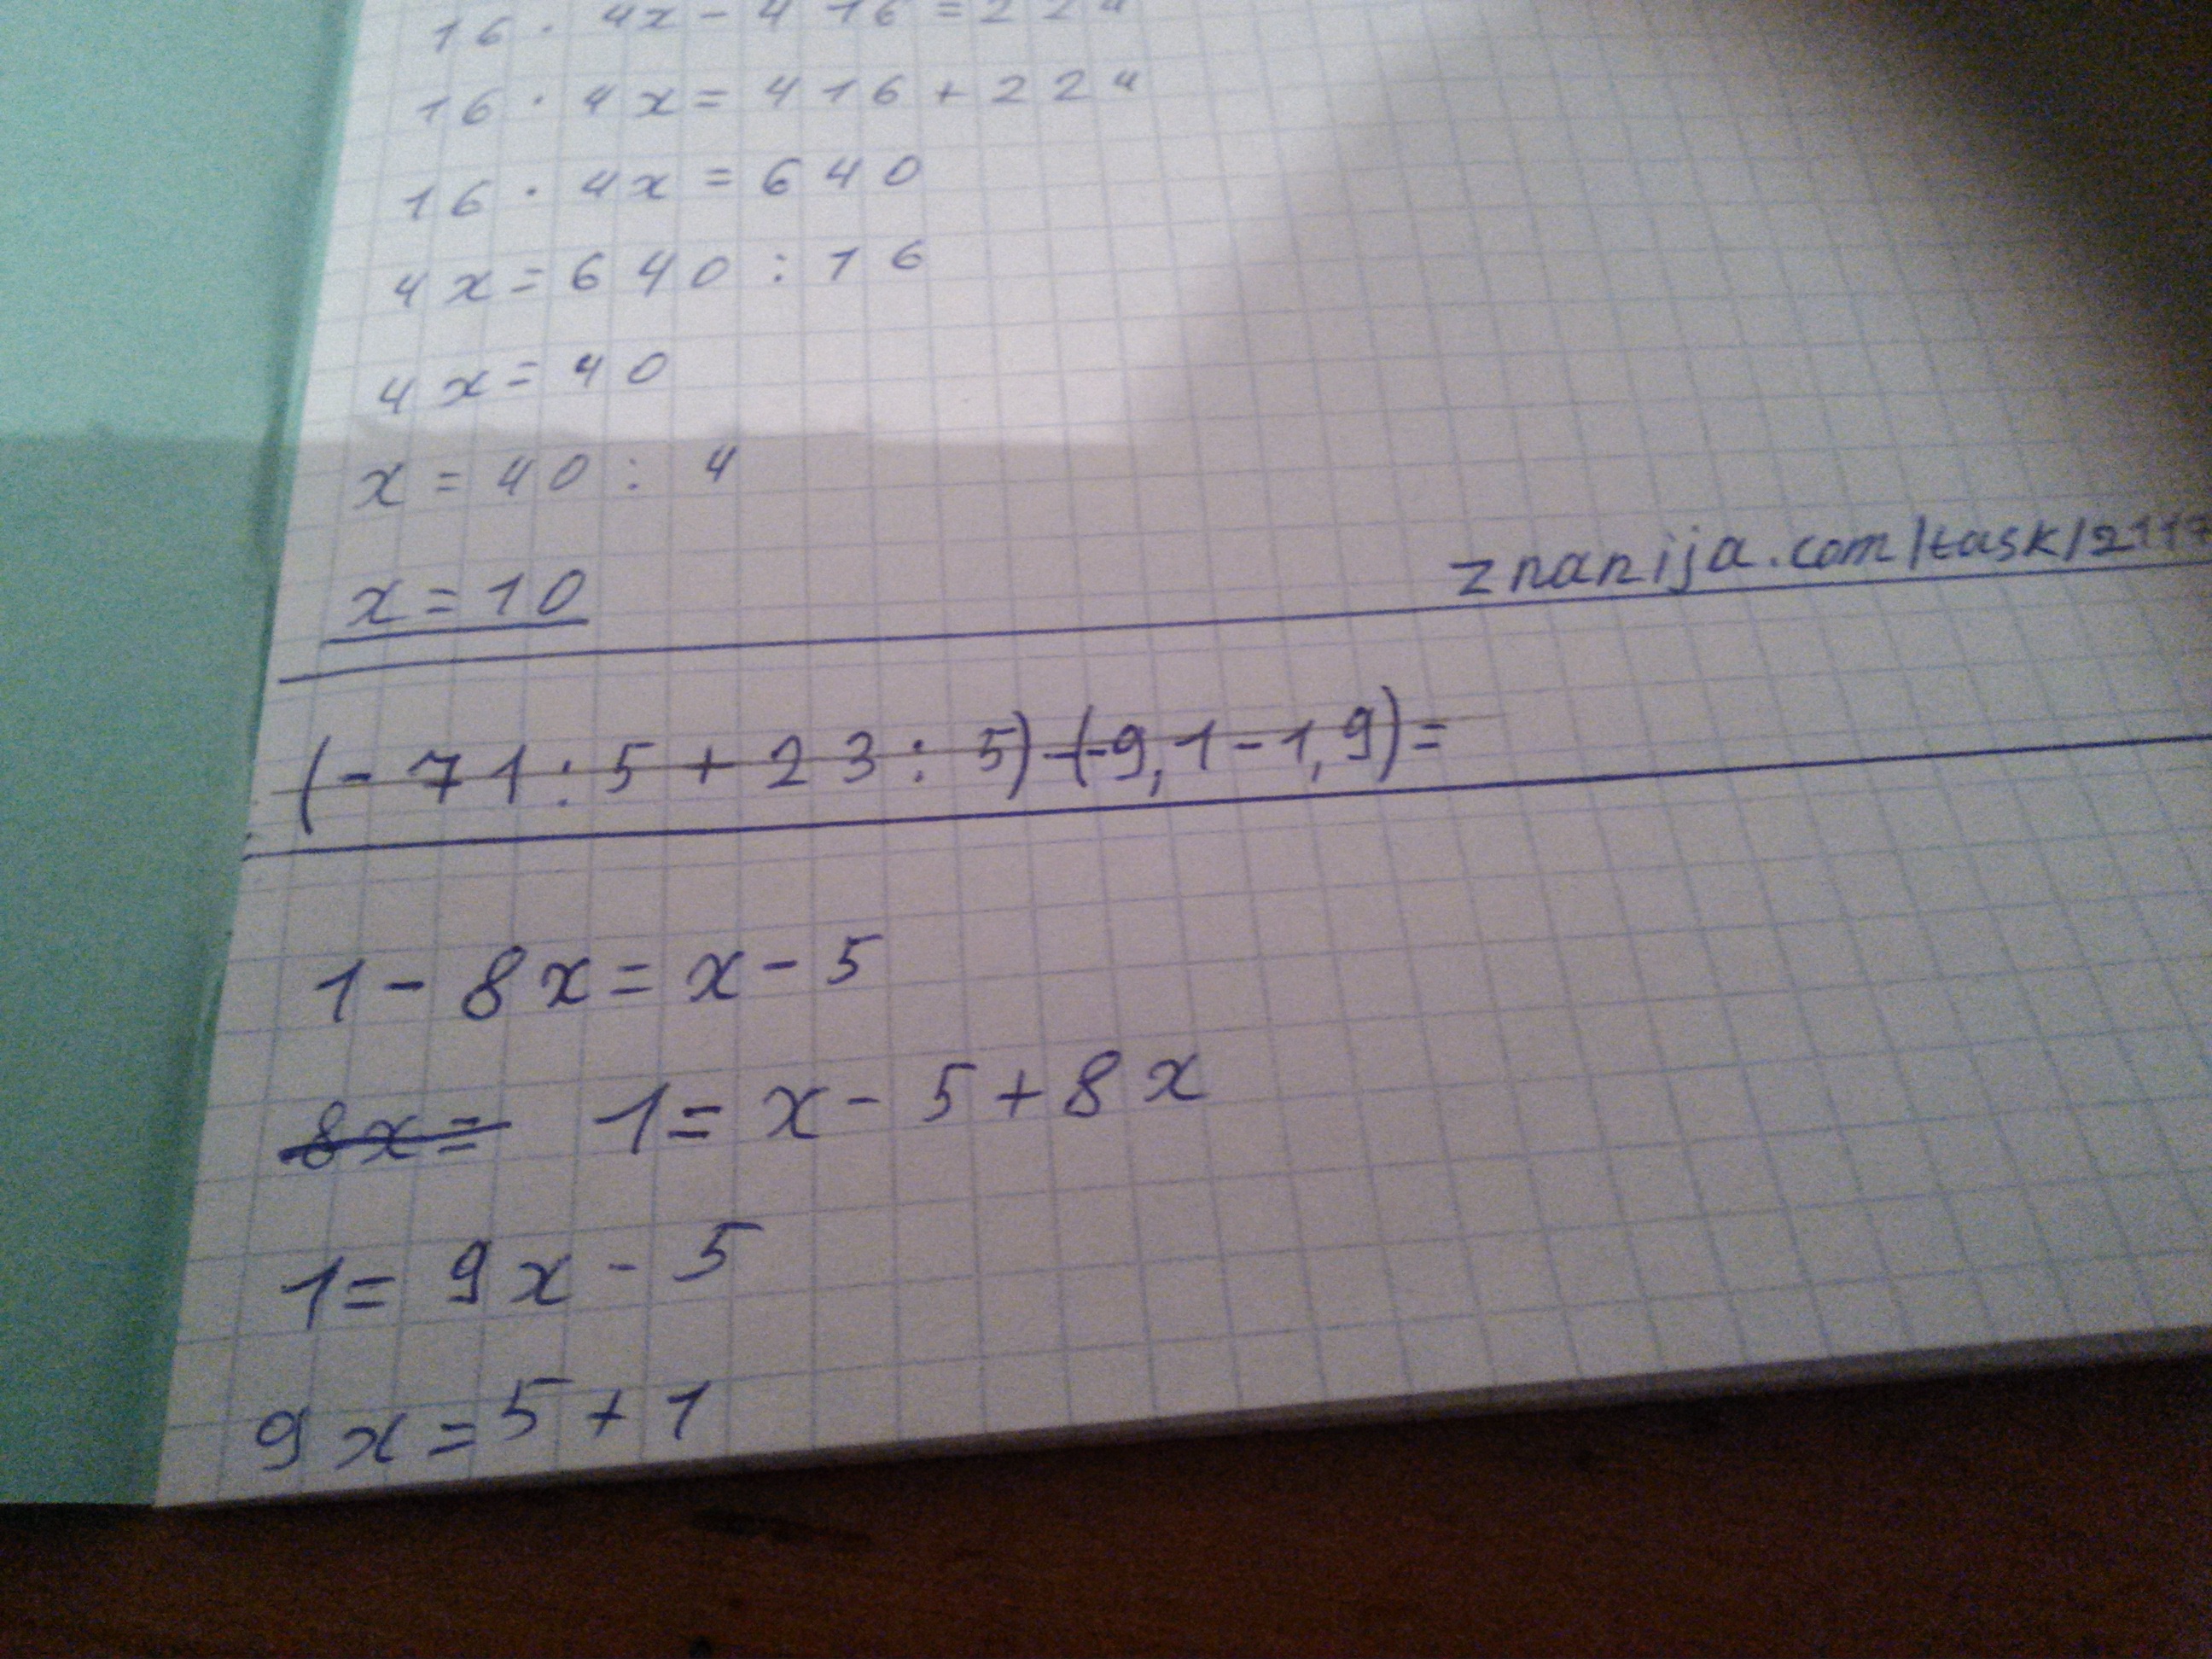 16 · 4x - 416 = 224
16 · 4x = 416 + 224
16 · 4x = 640
4x = 640 : 16
4x = 40
x = 40 : 4
x = 10
znanija.com/task/2117
(-71:5 + 23:5) - (-9,1 - 1,9) =
1 - 8x = x - 5
8x = 1 = x - 5 + 8x
1 = 9x - 5
9x = 5 + 1